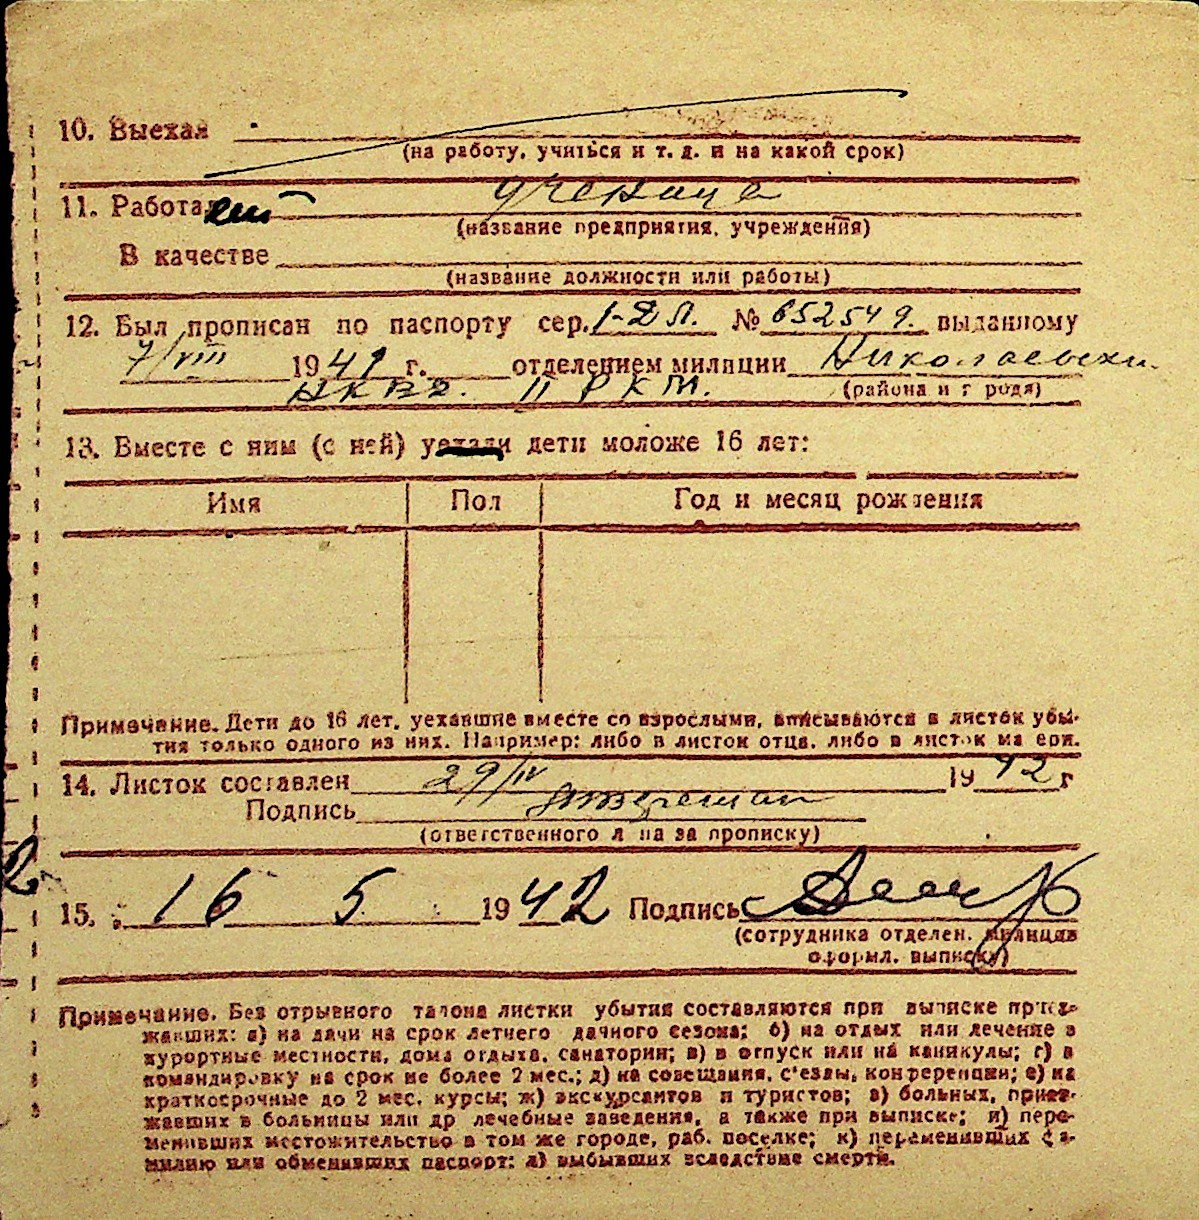 10. Выехал
(на работу, учиться и т. д. и на какой срок)
11. Работа ученица
(название предприятия, учреждения)
В качестве
(название должности или работы)
12. Был прописан по паспорту сер. I-ДЛ. № 652549. выданному
7/VIII 1941 г. отделением милиции Николаевски.
НКВД. II РКМ. (района и города)
13. Вместе с ним (с ней) уехали дети моложе 16 лет:
Имя Пол Год и месяц рождения
Примечание. Дети до 16 лет, уехавшие вместе со взрослыми, вписываются в листок убы-
тия только одного из них. Например: либо в листок отца, либо в листок матери.
14. Листок составлен 29/IV 1942 г
Подпись
(ответственного лица за прописку)
2
15. 16 5 1942 Подпись
(сотрудника отделен. милиции
оформл. выписку)
Примечание. Без отрывного талона листки убытия составляются при выписке приез-
жавших: а) на дачи на срок летнего дачного сезона; б) на отдых или лечение в
курортные местности, дома отдыха, санатории; в) в отпуск или на каникулы; г) в
командировку на срок не более 2 мес.; д) на совещания, с'езды, конференции; е) на
краткосрочные до 2 мес. курсы; ж) экскурсантов и туристов; з) больных, приез-
жавших в больницы или др лечебные заведения, а также при выписке; и) пере-
менивших местожительство в том же городе, раб. поселке; к) переменивших фа-
милию или обменивших паспорт; л) выбывших вследствие смерти.